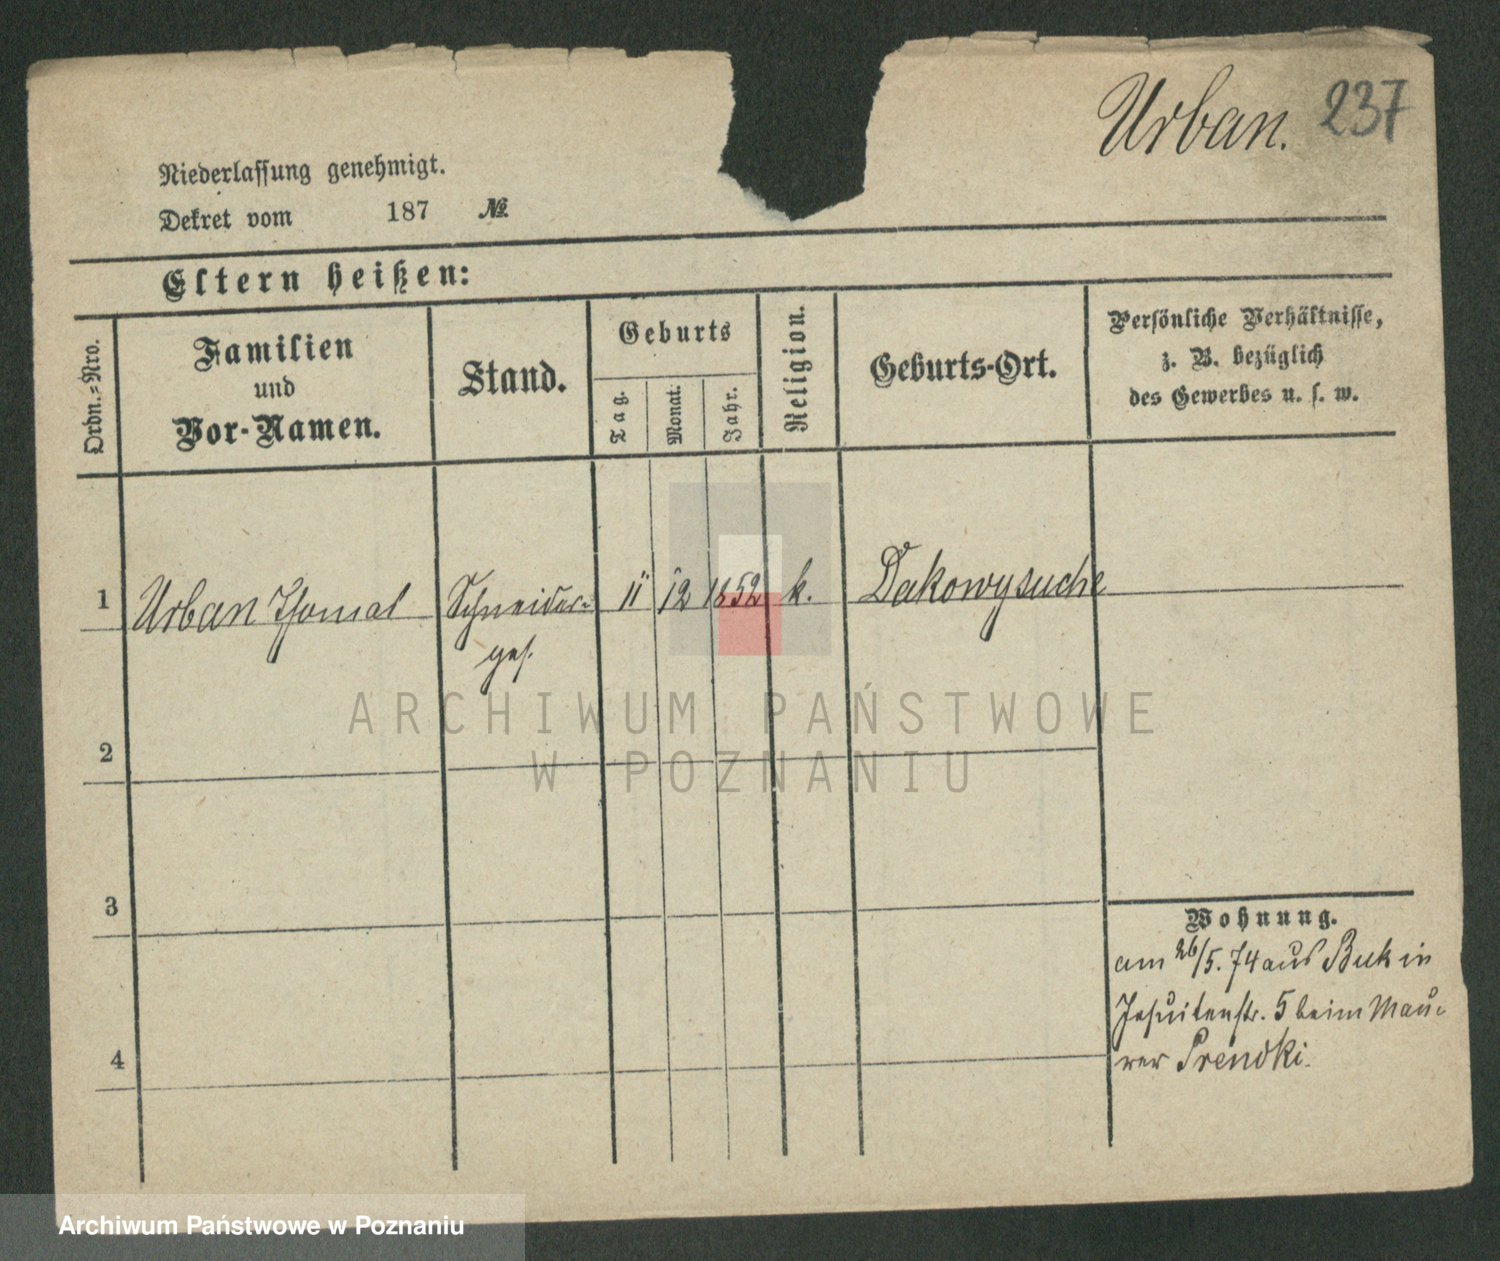 Urban. 237
Niederlassung genehmigt.
Dekret vom 187 №
Eltern heißen:
Ordn.-Nro.
Familien
und
Vor-Namen.
Stand.
Geburts
Tag.
Monat.
Jahr.
Religion.
Geburts-Ort.
Persönliche Verhältnisse,
z. B. bezüglich
des Gewerbes u. s. w.
1 Urban Thomas Schneider- 11 12 1852 k. Dakowysuche
ges.
ARCHIWUM PAŃSTWOWE
W POZNANIU
2
3
4
Wohnung.
am 26/5. 74 aus Buk in
Jesuitenstr. 5 beim Mau-
rer
Archiwum Państwowe w Poznaniu